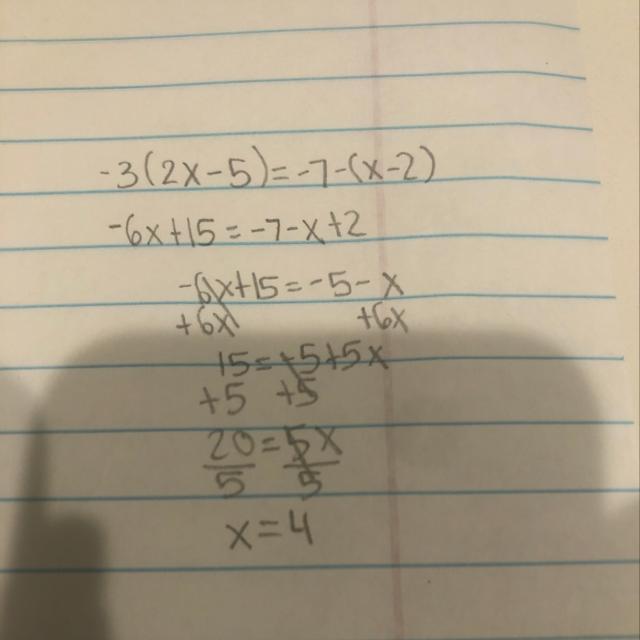 -3(2x-5)=-7-(x-2)
-6x+15=-7-x+2
-6x+15=-5-x
+6x +6x
15=-5+5x
+5 +5
20=5x
5 5
x=4